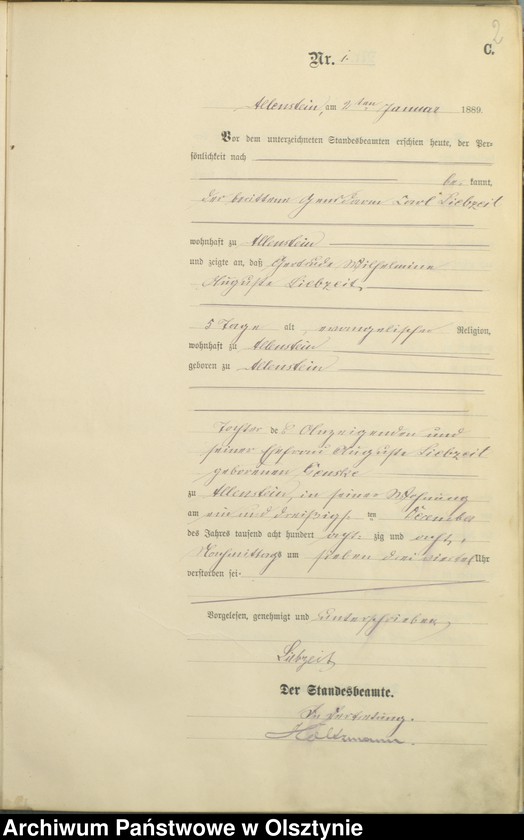 2
C.
Nr. 1.
Allenstein, am 2ten Januar 1889.
Vor dem unterzeichneten Standesbeamten erschien heute, der Per-
sönlichkeit nach
be kannt,
der berittene Gendarm Carl Liebzeit
wohnhaft zu Allenstein
und zeigte an, daß Gertrude Wilhelmine
Auguste Liebzeit,
5 Tage alt evangelischer Religion,
wohnhaft zu Allenstein
geboren zu Allenstein
Tochter des Anzeigenden und
seiner Ehefrau Auguste Liebzeit
geborenen
zu Allenstein, in seiner Wohnung
am ein und dreißigsten Dezember
des Jahres tausend acht hundert acht zig und acht,
Nachmittags um sieben drei viertel Uhr
verstorben sei.
Vorgelesen, genehmigt und unterschrieben
Liebzeit
Der Standesbeamte.
In Vertretung.
Holzmann.
Archiwum Państwowe w Olsztynie